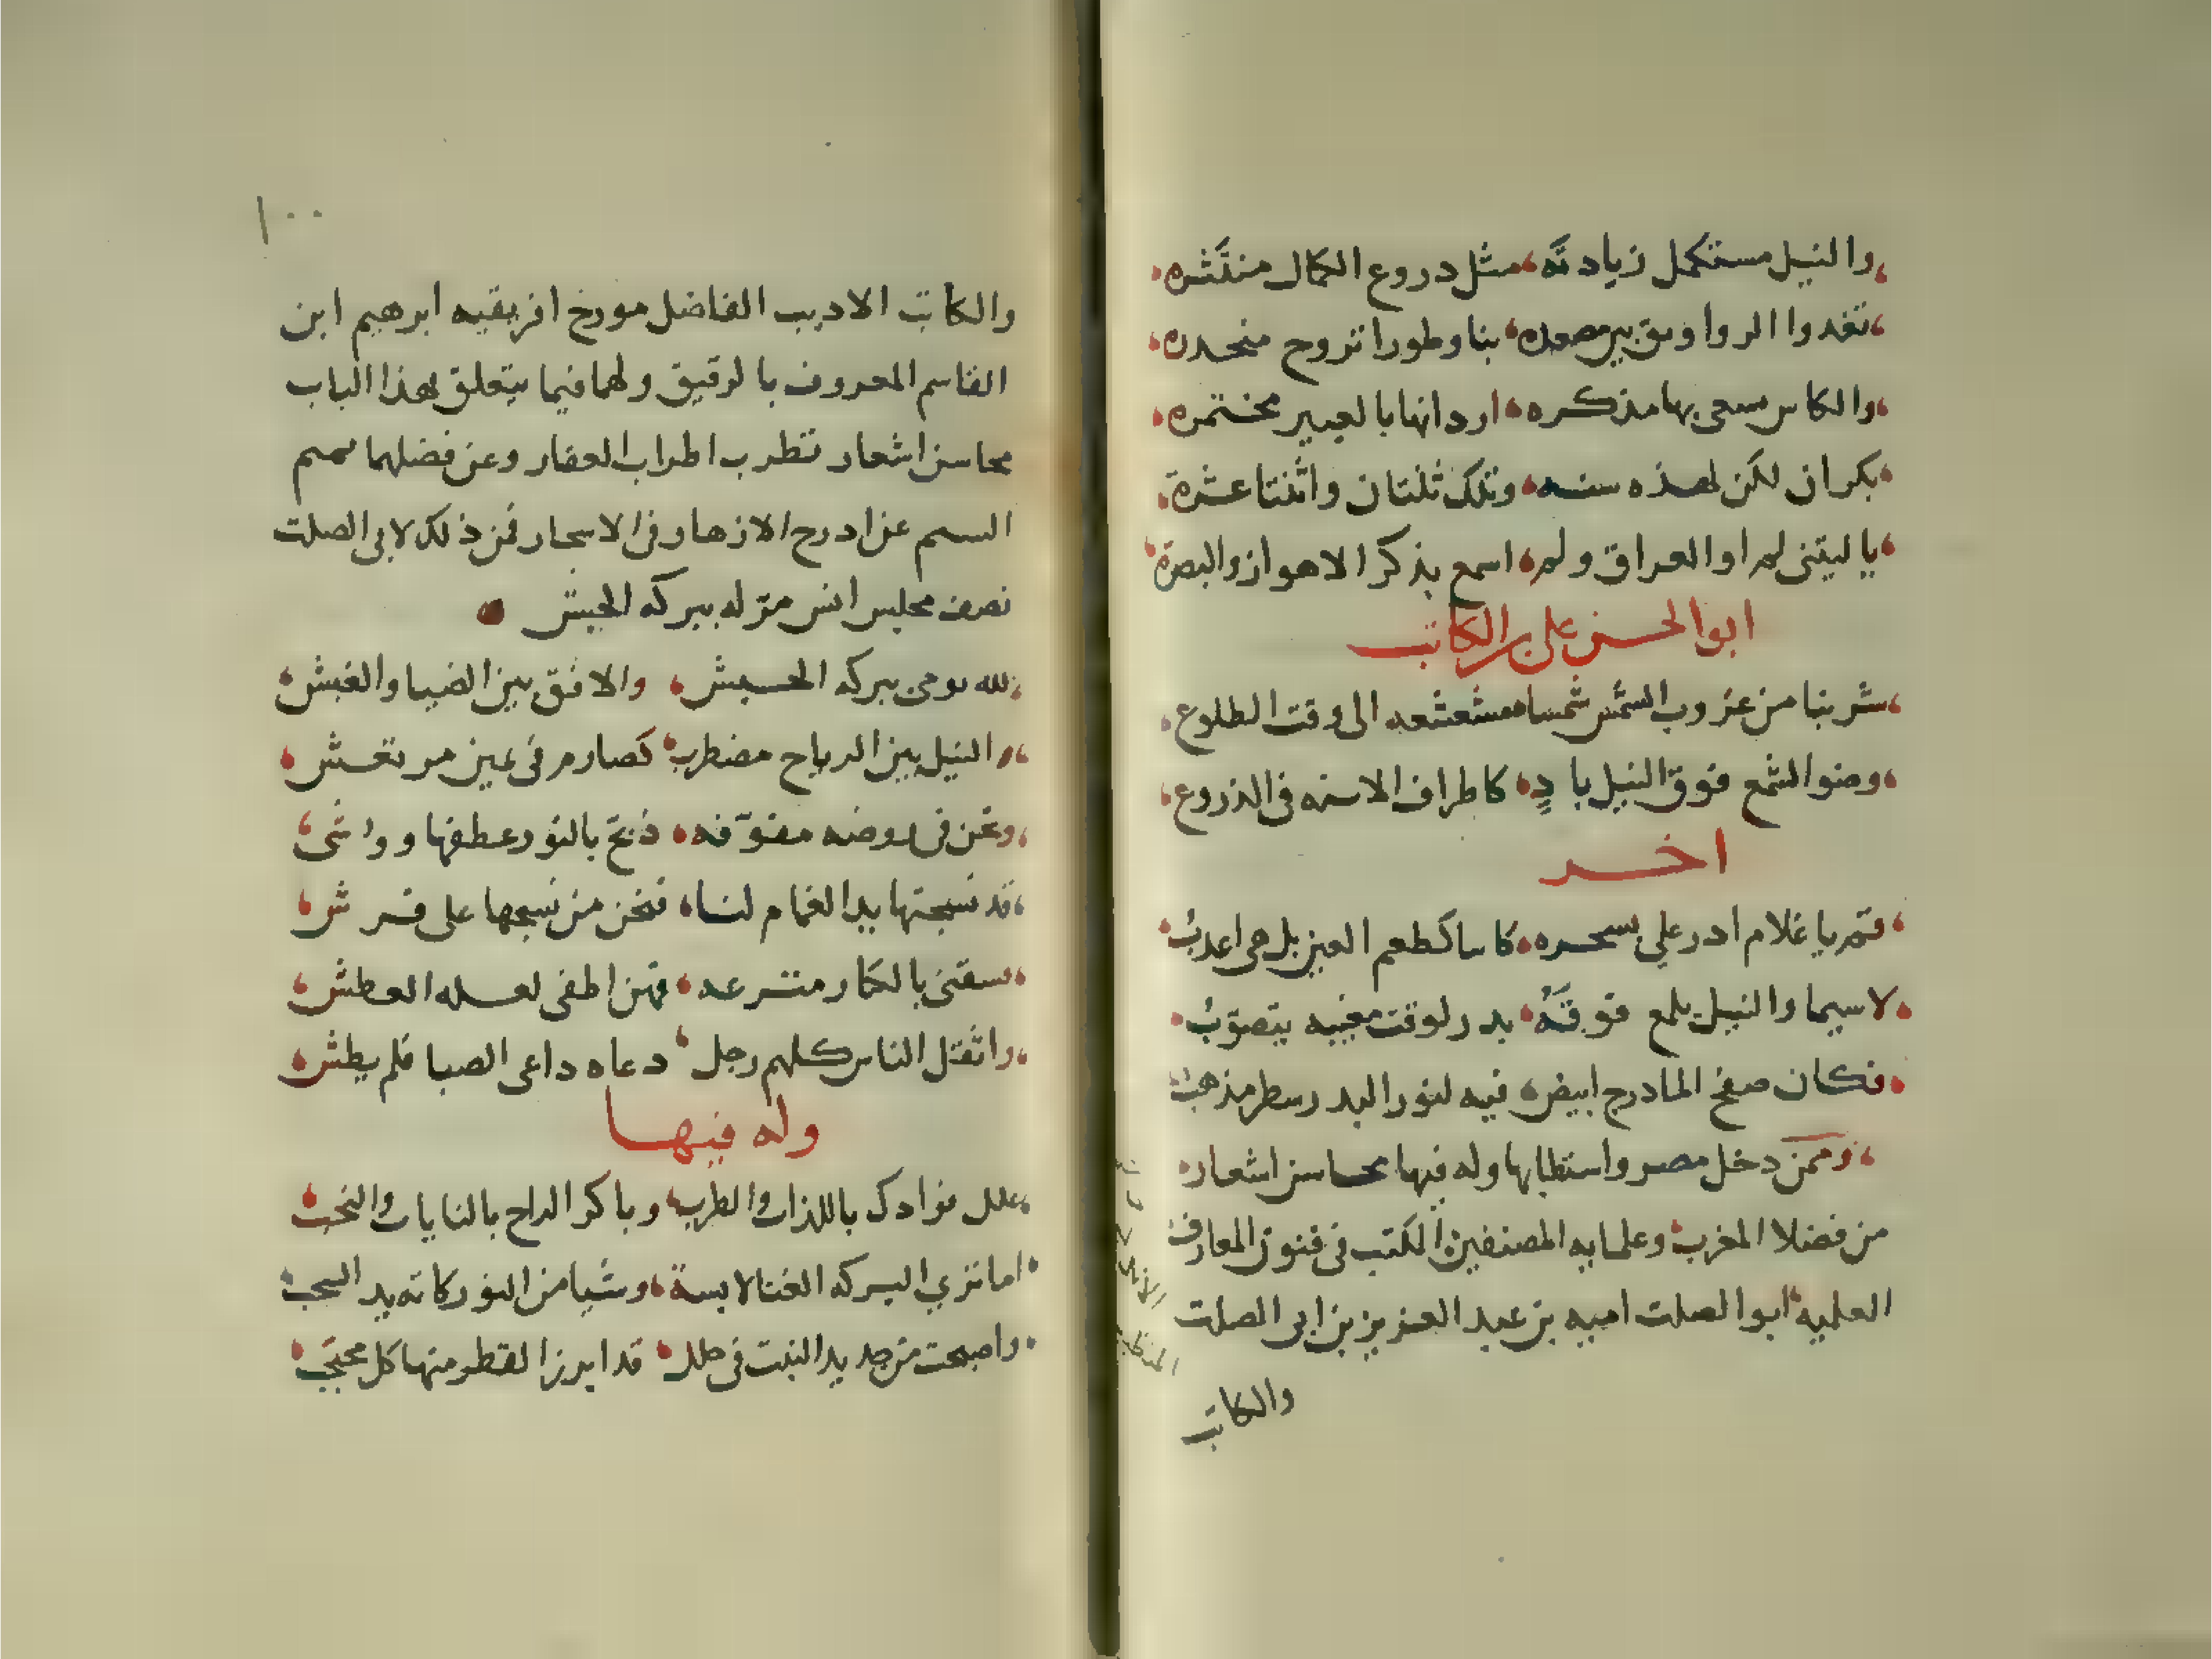 والنيل مستكمل زيادته مثل دروع الكمال منتثره
تغدوا الرواوىق بين مصعده بنا وطورا تروح منحدره
والكاس يسعى بها مذكره اردانها بالعبير مختمره
بكران لكن لهذه سنه وتلك ثلثتان واثنتا عشرة
يا ليتنى لم ار العراق ولم اسمع بذكر الاهواز والبصرة
ابو الحسن على بن الكاتب
شربنا من غروب الشمس شمسا مشعشعه الى وقت الطلوع
وضوا الشمع فوق النيل بادٍ كاطراف الاسنه فى الدروع
اخر
قم يا غلام ادر علي بسحره كاسا كطعم العيز بل هى اعذب
لا سيما والنيل يلمع فوقَهُ بدر لوقت مغيبه يتصوّبُ
فكان صفح الما درج ابيض فيه لنور البدر سطر مذهب
وممن دخل مصر واستطابها وله فيها محاسن اشعار
من فضلا المغرب وعلمايه المصنفين الكتب فى فنون المعارف
العليه ابوا الصلت اميه بن عبد العزيز بن ابى الصلت
والكاتب
١٠٠
والكاتب الاديب الفاضل مورخ افريقيه ابرهيم ابن
القاسم المعروف بالرقيق ولهما فيما يتعلق بهذا الباب
محاسن اشعار تطرب اطراب العقار وعن فضلهما
النسيم عن ادرح الازهار فى الاسحار فمن ذلك لابى الصلت
نصف مجلس انس مرّ له ببركه الحبش
لله يومى ببركه الحبش والافق بين الضيا والغبش
والنيل بين الرياح مضطرب كصارم فى عين مرتعش
ونحن فى روضه مفوّفه دبّج بالنور عطفها ووشى
قد نسجتها يد الغمام لنا فنحن من نسجها على فرش
سقنى بالكار مترعه فهن اطفى لعله العطش
واثقل الناس كلهم رجل دعاه داعى الصبا فلم يطش
وله فيها
علل فوادك باللذات والطرب وباكر الراح بالنايات والنخب
اما تري البركه الغنا لابسة وشيا من النور كاته يد السحب
واصبحت من جديد النبت فى حلل قد ابرز القطر منها كل محتجب